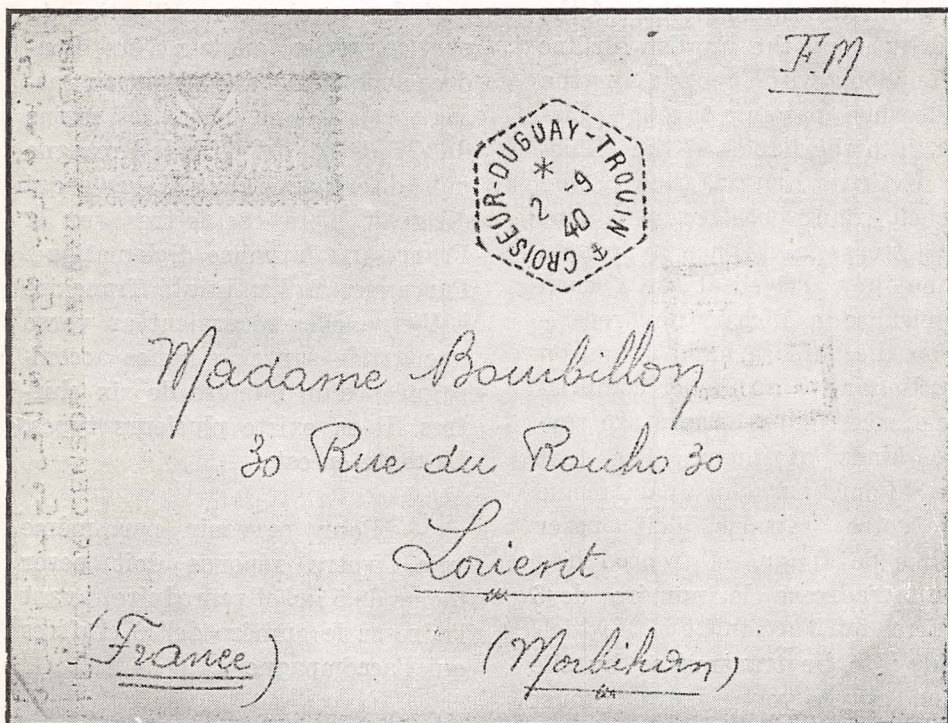 FM
CROISEUR-DUGUAY-TROUIN
* 2 -9 40
Madame Bourbillon
30 Rue du Rouho 30
Lorient
(France) (Morbihan)